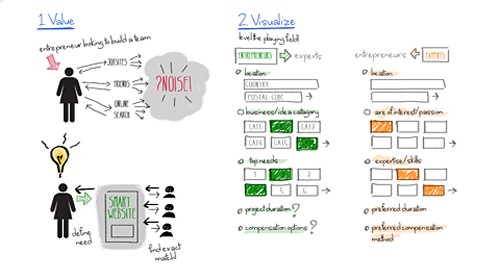 1 Value
entrepreneur looking to build a team
JOBSITES
FRIENDS
ONLINE
SEARCH
?NOISE!
SMART
WEBSITE
define
need
find exact
match!
2. Visualize
level the playing field
ENTREPRENEURS
experts
location
COUNTRY
POSTAL CODE
business/idea category
CAT1
CAT3
CAT4
CAT5
top needs
1
3
5
6
project duration?
compensation options?
entrepreneurs
EXPERTS
location
are of interest/passion
expertise/skills
preferred duration
preferred compensation
method